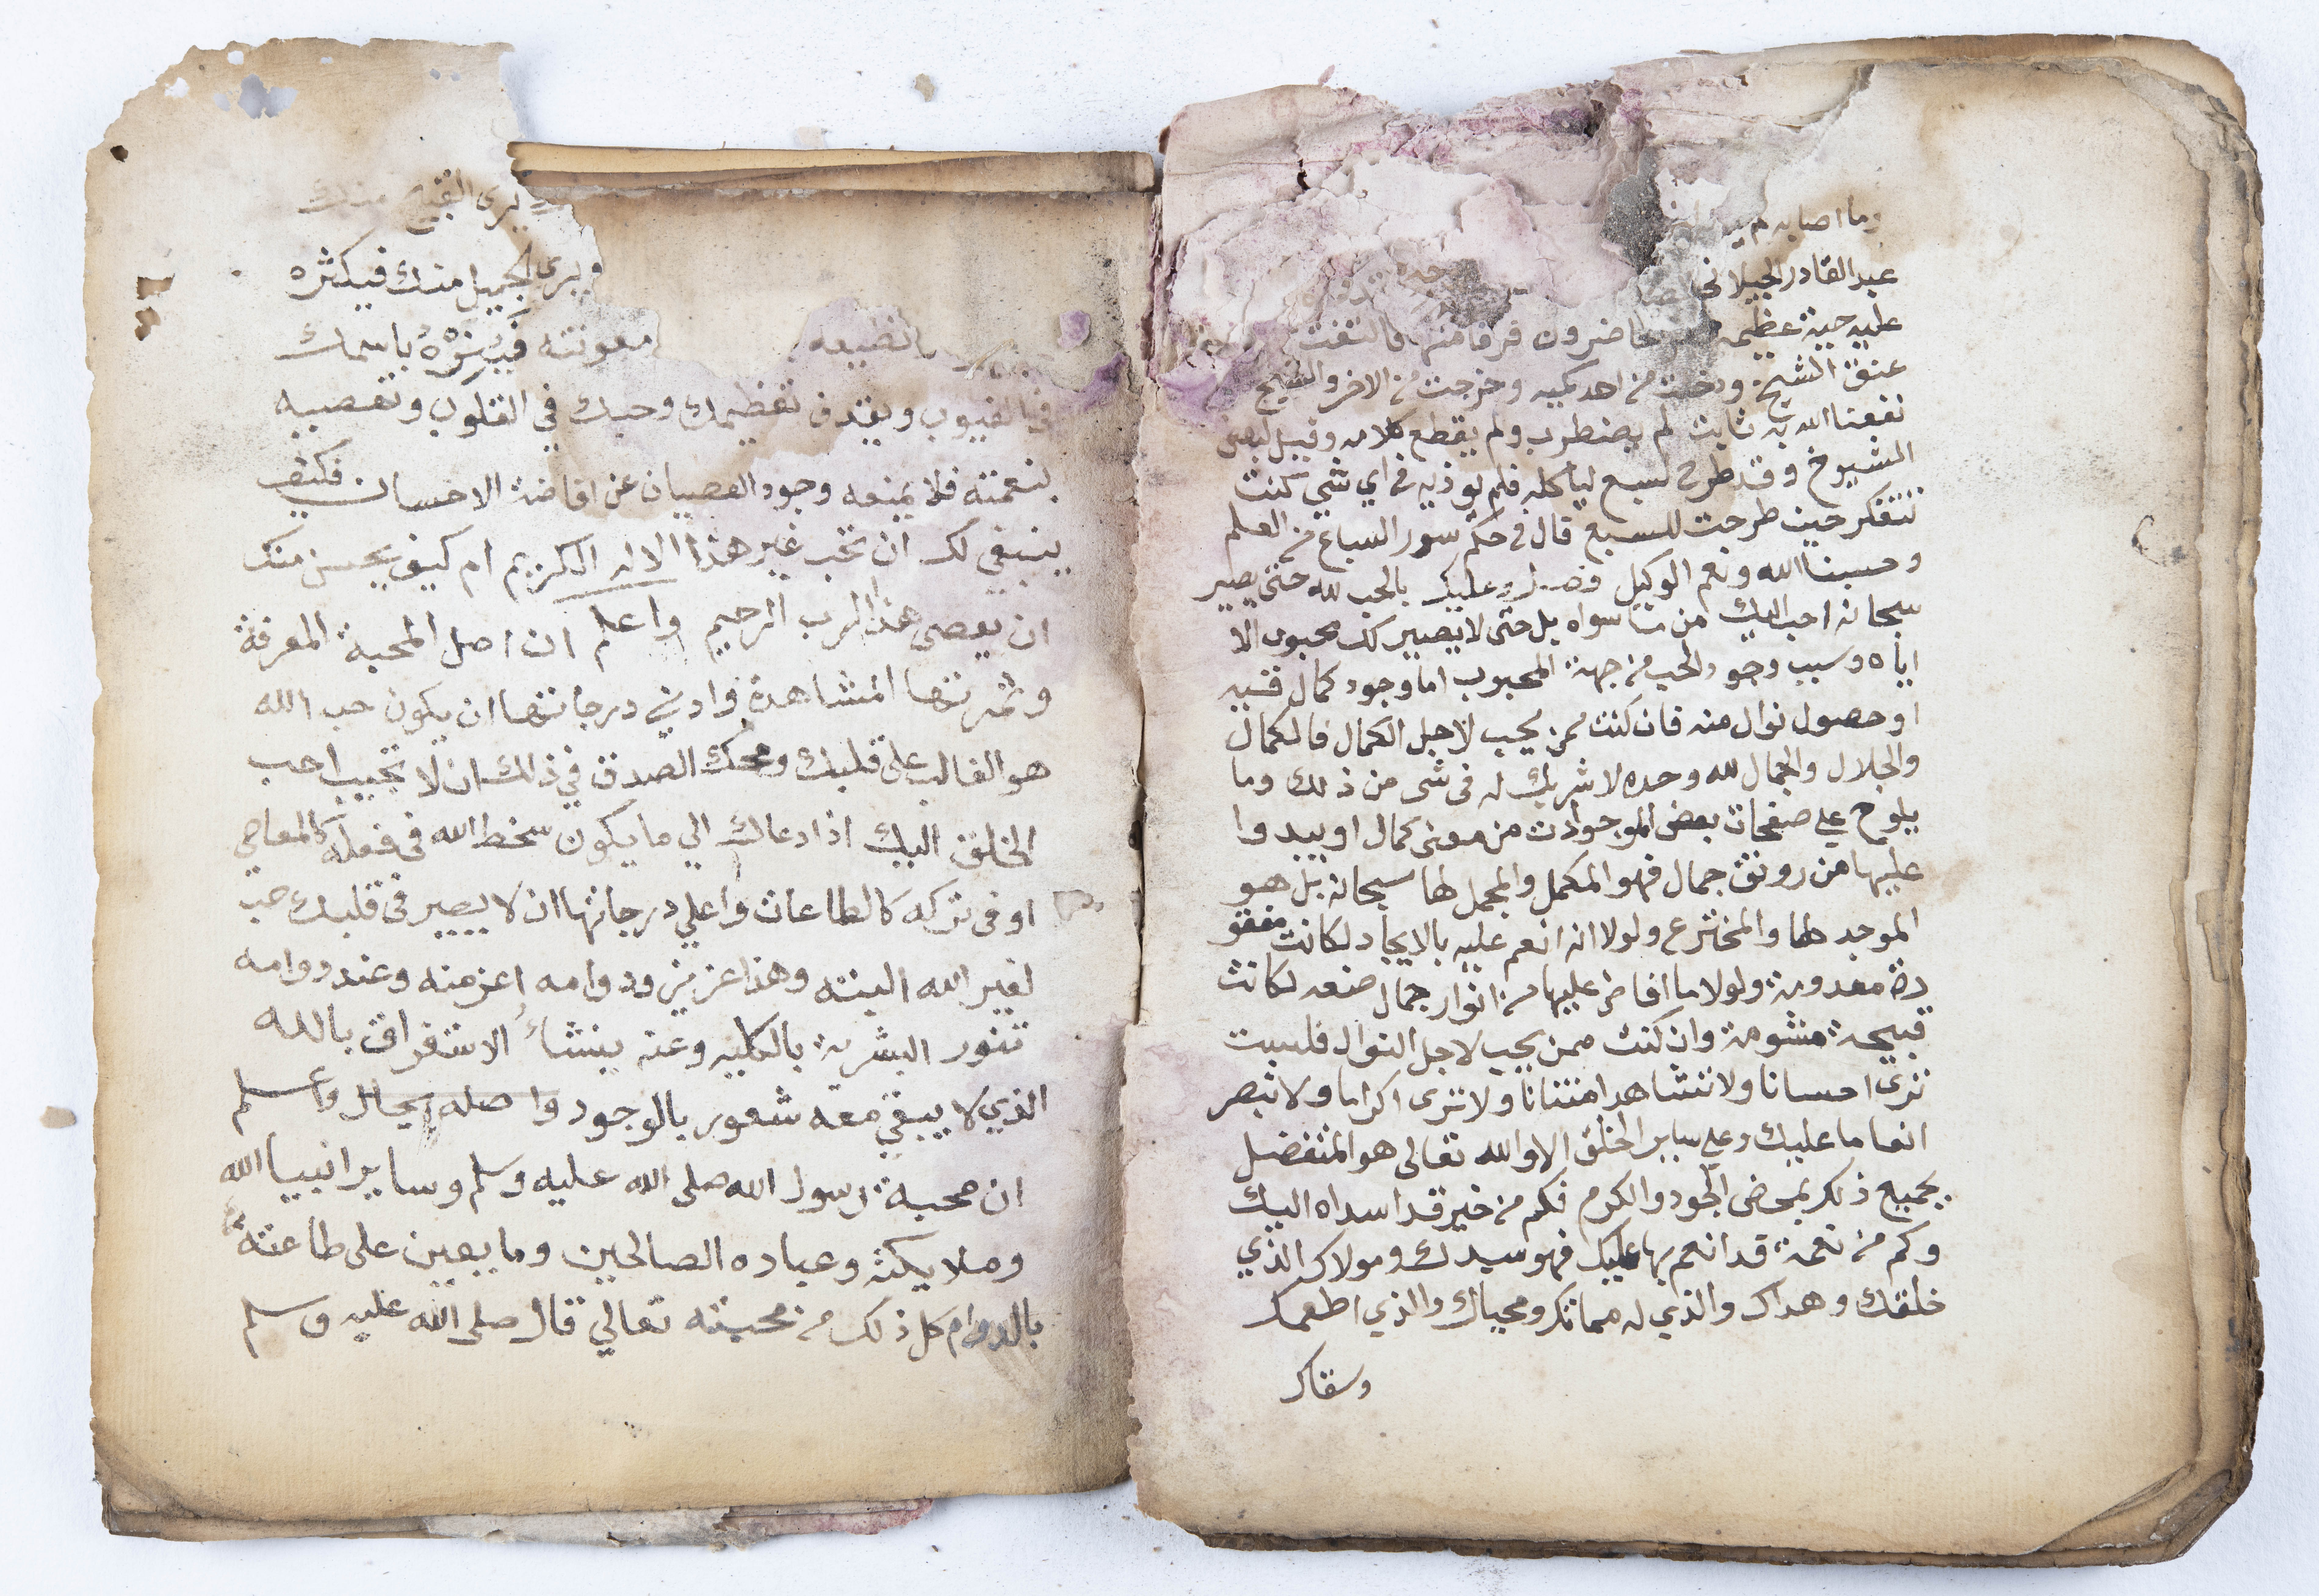 وما اصابه
عبد القادر الجيلاني
عليه حية عظيمة حاضرون فرقا منها فالتفت
عنق الشيخ ودخلت من احد كميه وخرجت من الاخر والشيخ
نفعنا الله به ثابت لم يضطرب ولم يقطع كلامه وقيل لبعض
الشيوخ وقد طرح لسبع لياكله فلم يوذيه في اي شي كنت
تتفكر حين طرحت للسبع قال في حكم سور السباع من العلم
وحسبنا الله ونعم الوكيل فصل وعليك بالحب لله حتى يصير
سبحانه احب اليك من ما سواه بل حتى لا يصير لك محبوب الا
اياه وسبب وجود الحب من جهة المحبوب اما وجود كمال فيه
او حصول نوال منه فان كنت ممن يحب لاجل الكمال فالكمال
والجلال والجمال لله وحده لا شريك له في شى من ذلك وما
يلوح على صفحات بعض الموجودات من معنى كمال او يبدوا
عليها من رونق جمال فهو المكمل والمجمل لها سبحانه بل هو
الموجد لها والمخترع ولولا انه انعم عليه بالايجاد لكانت مفقو
دة معدومة ولولا ما افاض عليها من انوار جمال صنعه لكانت
قبيحة مشومة وان كنت ممن يحب لاجل النوال فلست
ترى احسانا ولا تشاهد امتنانا ولا ترى اكراما ولا تبصر
انعاما عليك وعلى ساير الخلق الا والله تعالى هو المتفضل
بجميع ذلك بمحض الجود والكرم فكم من خير قد اسداه اليك
وكم من نعمة قد انعم بها عليك فهو سيدك ومولاك الذي
خلقك وهداك والذي له مماتك ومحياك والذي اطعمك
وسقاك
يرى القبيح منك
ويرى الجميل منك فيكثره
معونته باسمك
في الغيوب ويقذف تعظيمك وحبك في القلوب وتعصيه
بنعمته فلا يمنعه وجود العصيان عن افاضة الاحسان فكيف
ينبغي لك ان تحب غير هذا الاله الكريم ام كيف يحسن منك
ان يعصى هذا الرب الرحيم واعلم ان اصل المحبة المعرفة
وثمرتها المشاهدة وادنى درجاتها ان يكون حب الله
هو الغالب على قلبك ومحك الصدق في ذلك ان لا تجيب احب
الخلق اليك اذا دعاك الي ما يكون سخط الله في فعله كالمعاصي
او في تركه كالطاعات واعلي درجاتها ان لا يصير في قلبك حب
لغير الله البته وهذا عزيز ودوامه اعز منه وعند دوامه
تنور البشرية بالكليه وعنه ينشأ الاستغراق بالله
الذي لا يبقى معه شعور بالوجود واصله بحال واعلم
ان محبة رسول الله صلى الله عليه وسلم وساير انبيا الله
وملايكته وعباده الصالحين وما يعين على طاعته
بالدوام كل ذلك من محبته تعالي قال صلى الله عليه وسلم